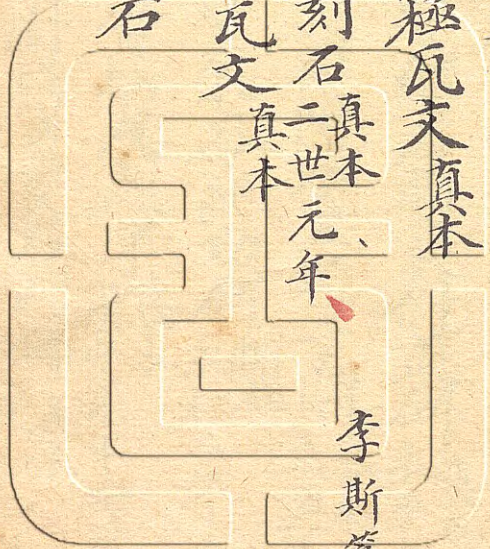 極瓦文真本
刻石
真本、李斯
二世元年
瓦文真本
石